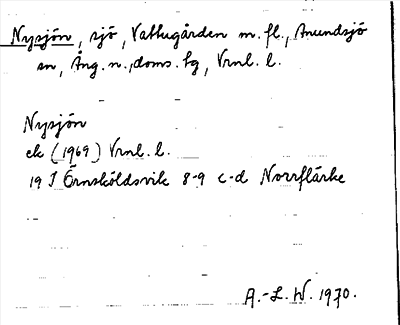 Nysjön, sjö, Vattugården m. fl., Anundsjö
sn, Ång. n., doms. lg, Vrnl. l.
Nysjön
ek (1969) Vrnl. l.
19 I Örnsköldsvik 8-9 c-d Norrflärke
A.-L. W. 1970.